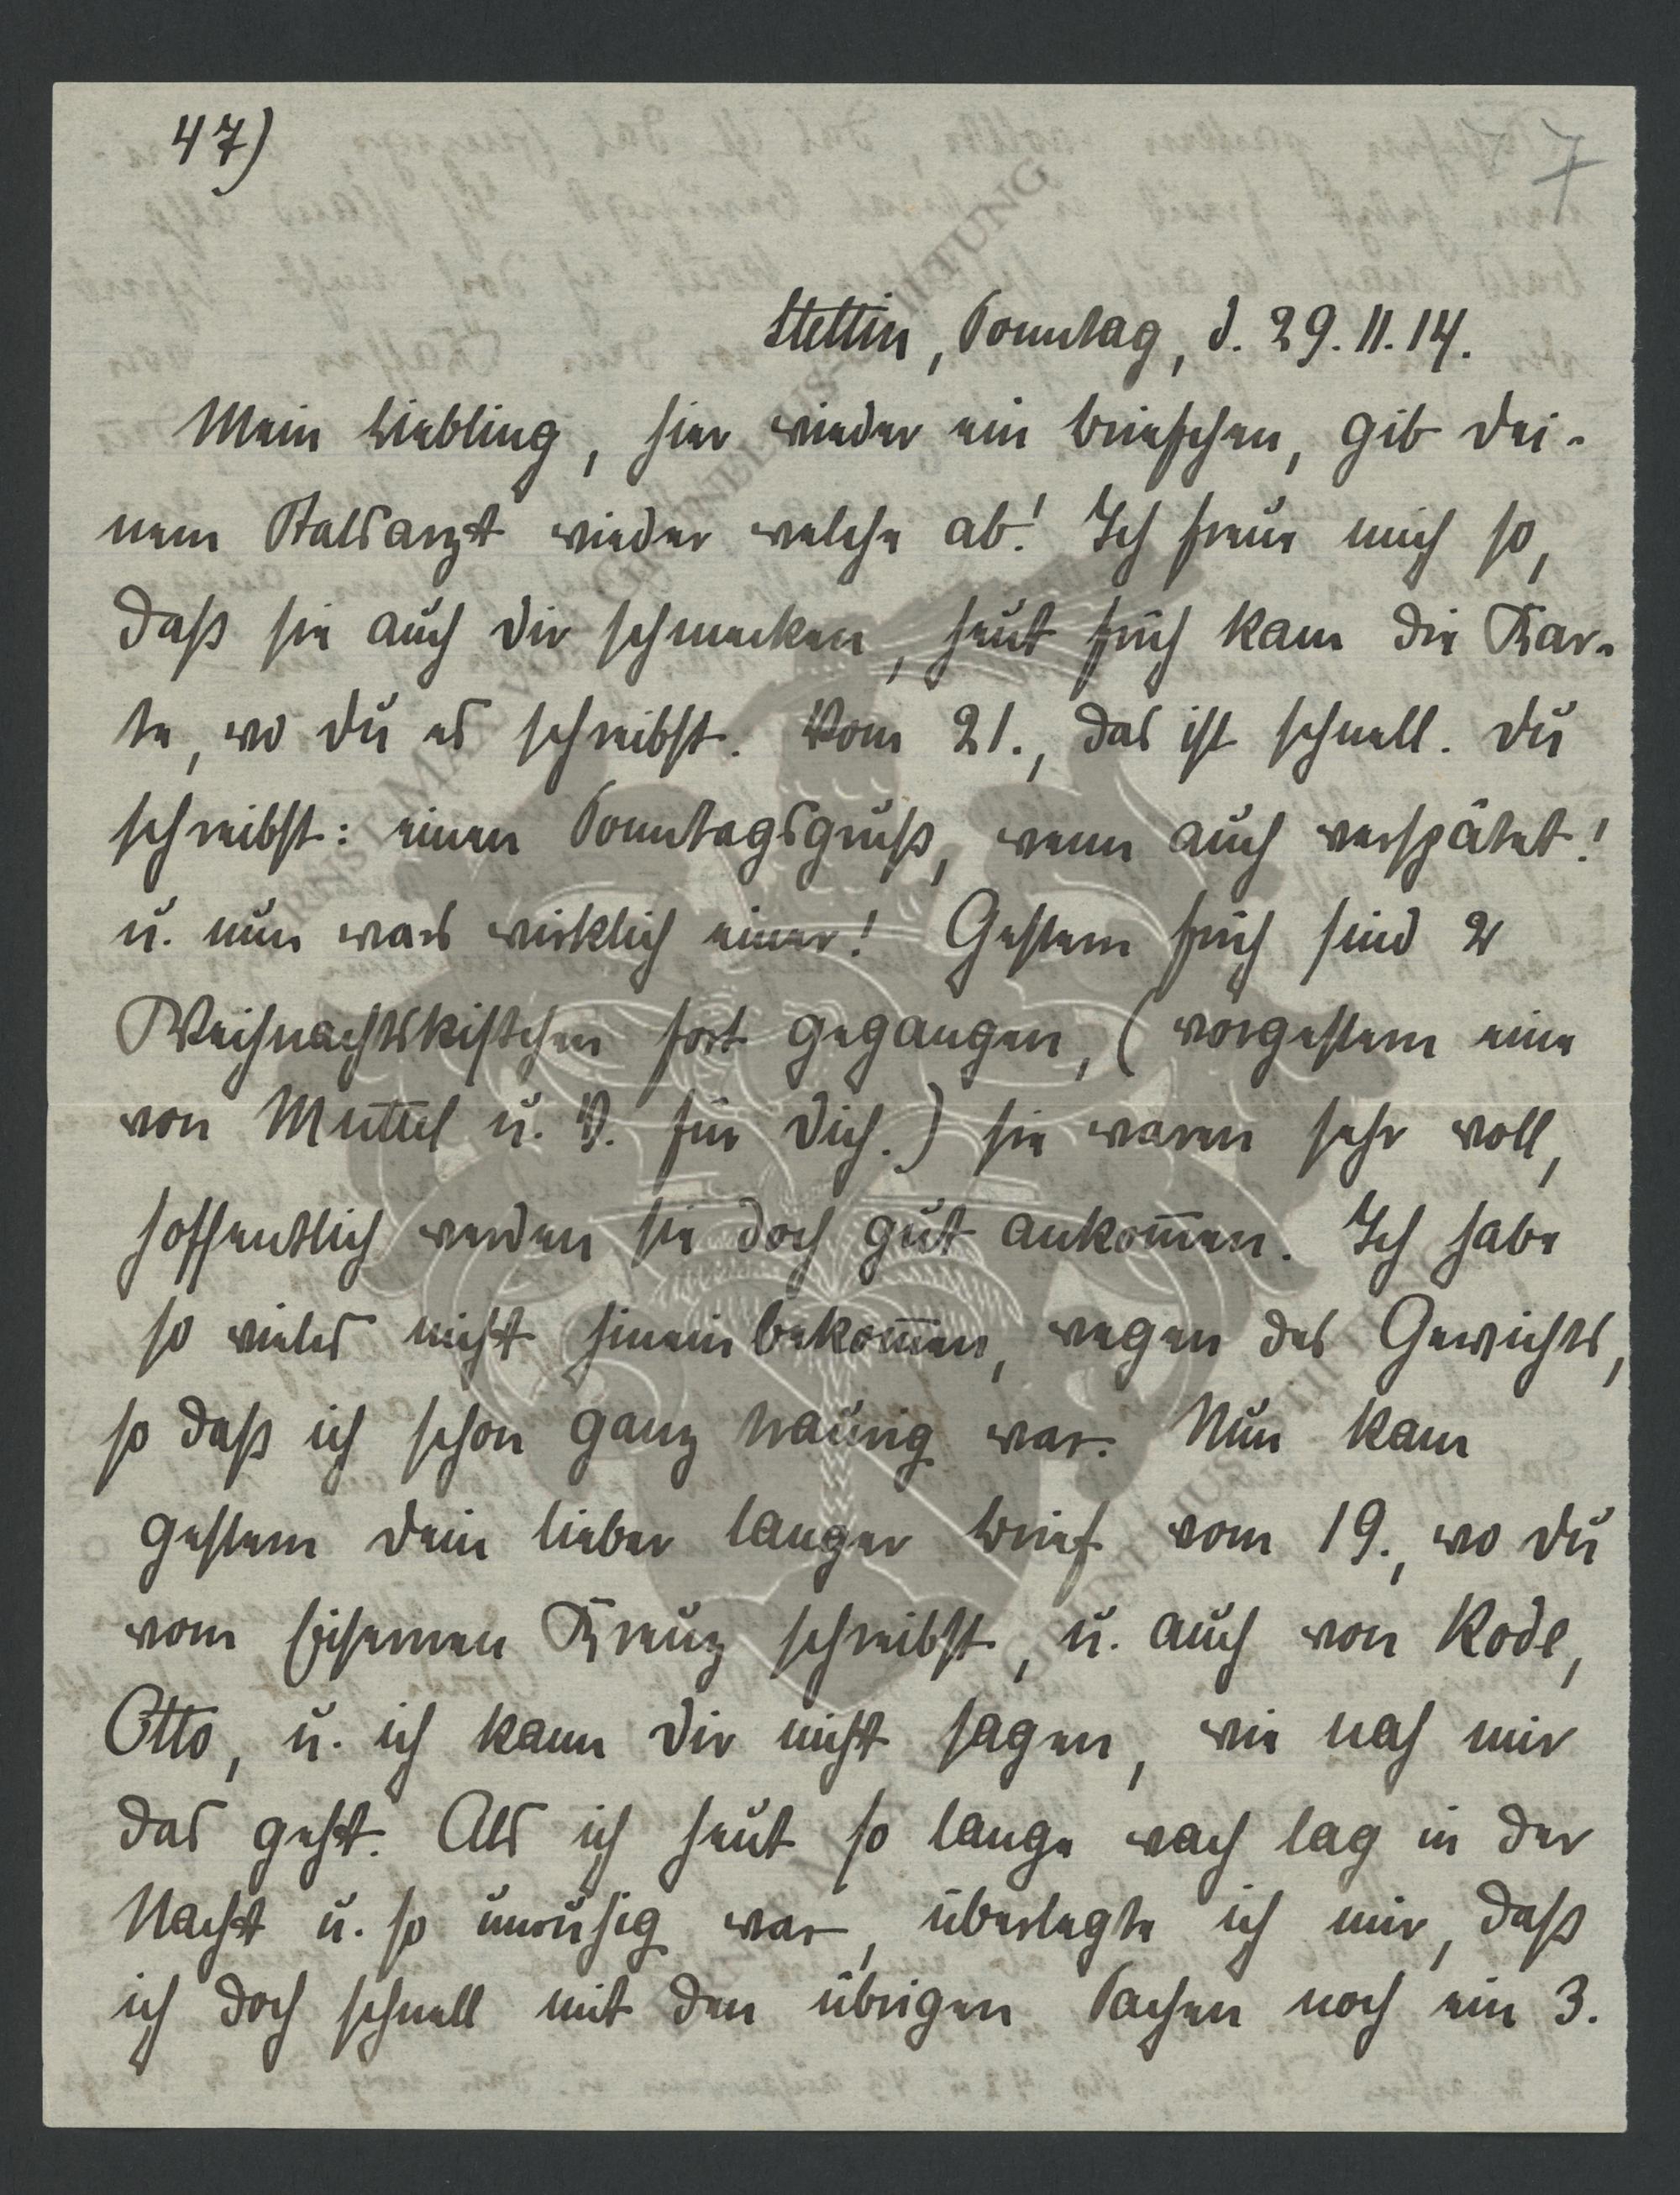 47)
7
Stettin, Sonntag, d. 29.11.14.
Mein Liebling, hier wieder ein Briefchen, gib dei-
nem Stabsarzt wieder welche ab! Ich freue mich so,
daß sie auch dir schmecken, heut früh kam die Kar-
te, wo du es schreibst. Vom 21., das ist schnell. Du
schreibst: einen Sonntagsgruß, wenn auch verspätet!
u. nun wars wirklich einer! Gestern früh sind 2
Weihnachtskistchen fort gegangen, (vorgestern eine
von Muttel u. V. für dich.) sie waren sehr voll,
hoffentlich werden sie doch gut ankom̄en. Ich habe
so vieles nicht hineinbekom̄en, wegen des Gewichts,
so daß ich schon ganz traurig war. Nun kam
gestern dein lieber langer Brief vom 19., wo du
vom Eisernen Kreuz schreibst, u. auch von Rode,
Otto, u. ich kann dir nicht sagen, wie nah mir
das geht. Als ich heut so lange wach lag in der
Nacht u. so unruhig war, überlegte ich mir, daß
ich doch schnell mit den übrigen Sachen noch ein 3.